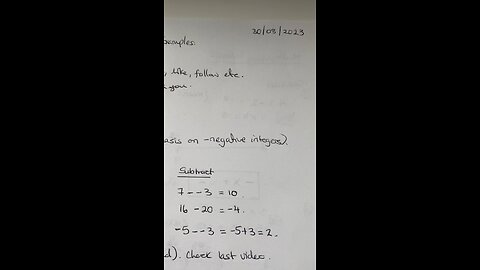 30/03/2023
examples.
, like, follow etc.
you.
asis on -negative integers).
Subtract
7 - -3 = 10.
16 - 20 = -4.
-5 - -3 = -5+3 = 2.
d). Check last video.